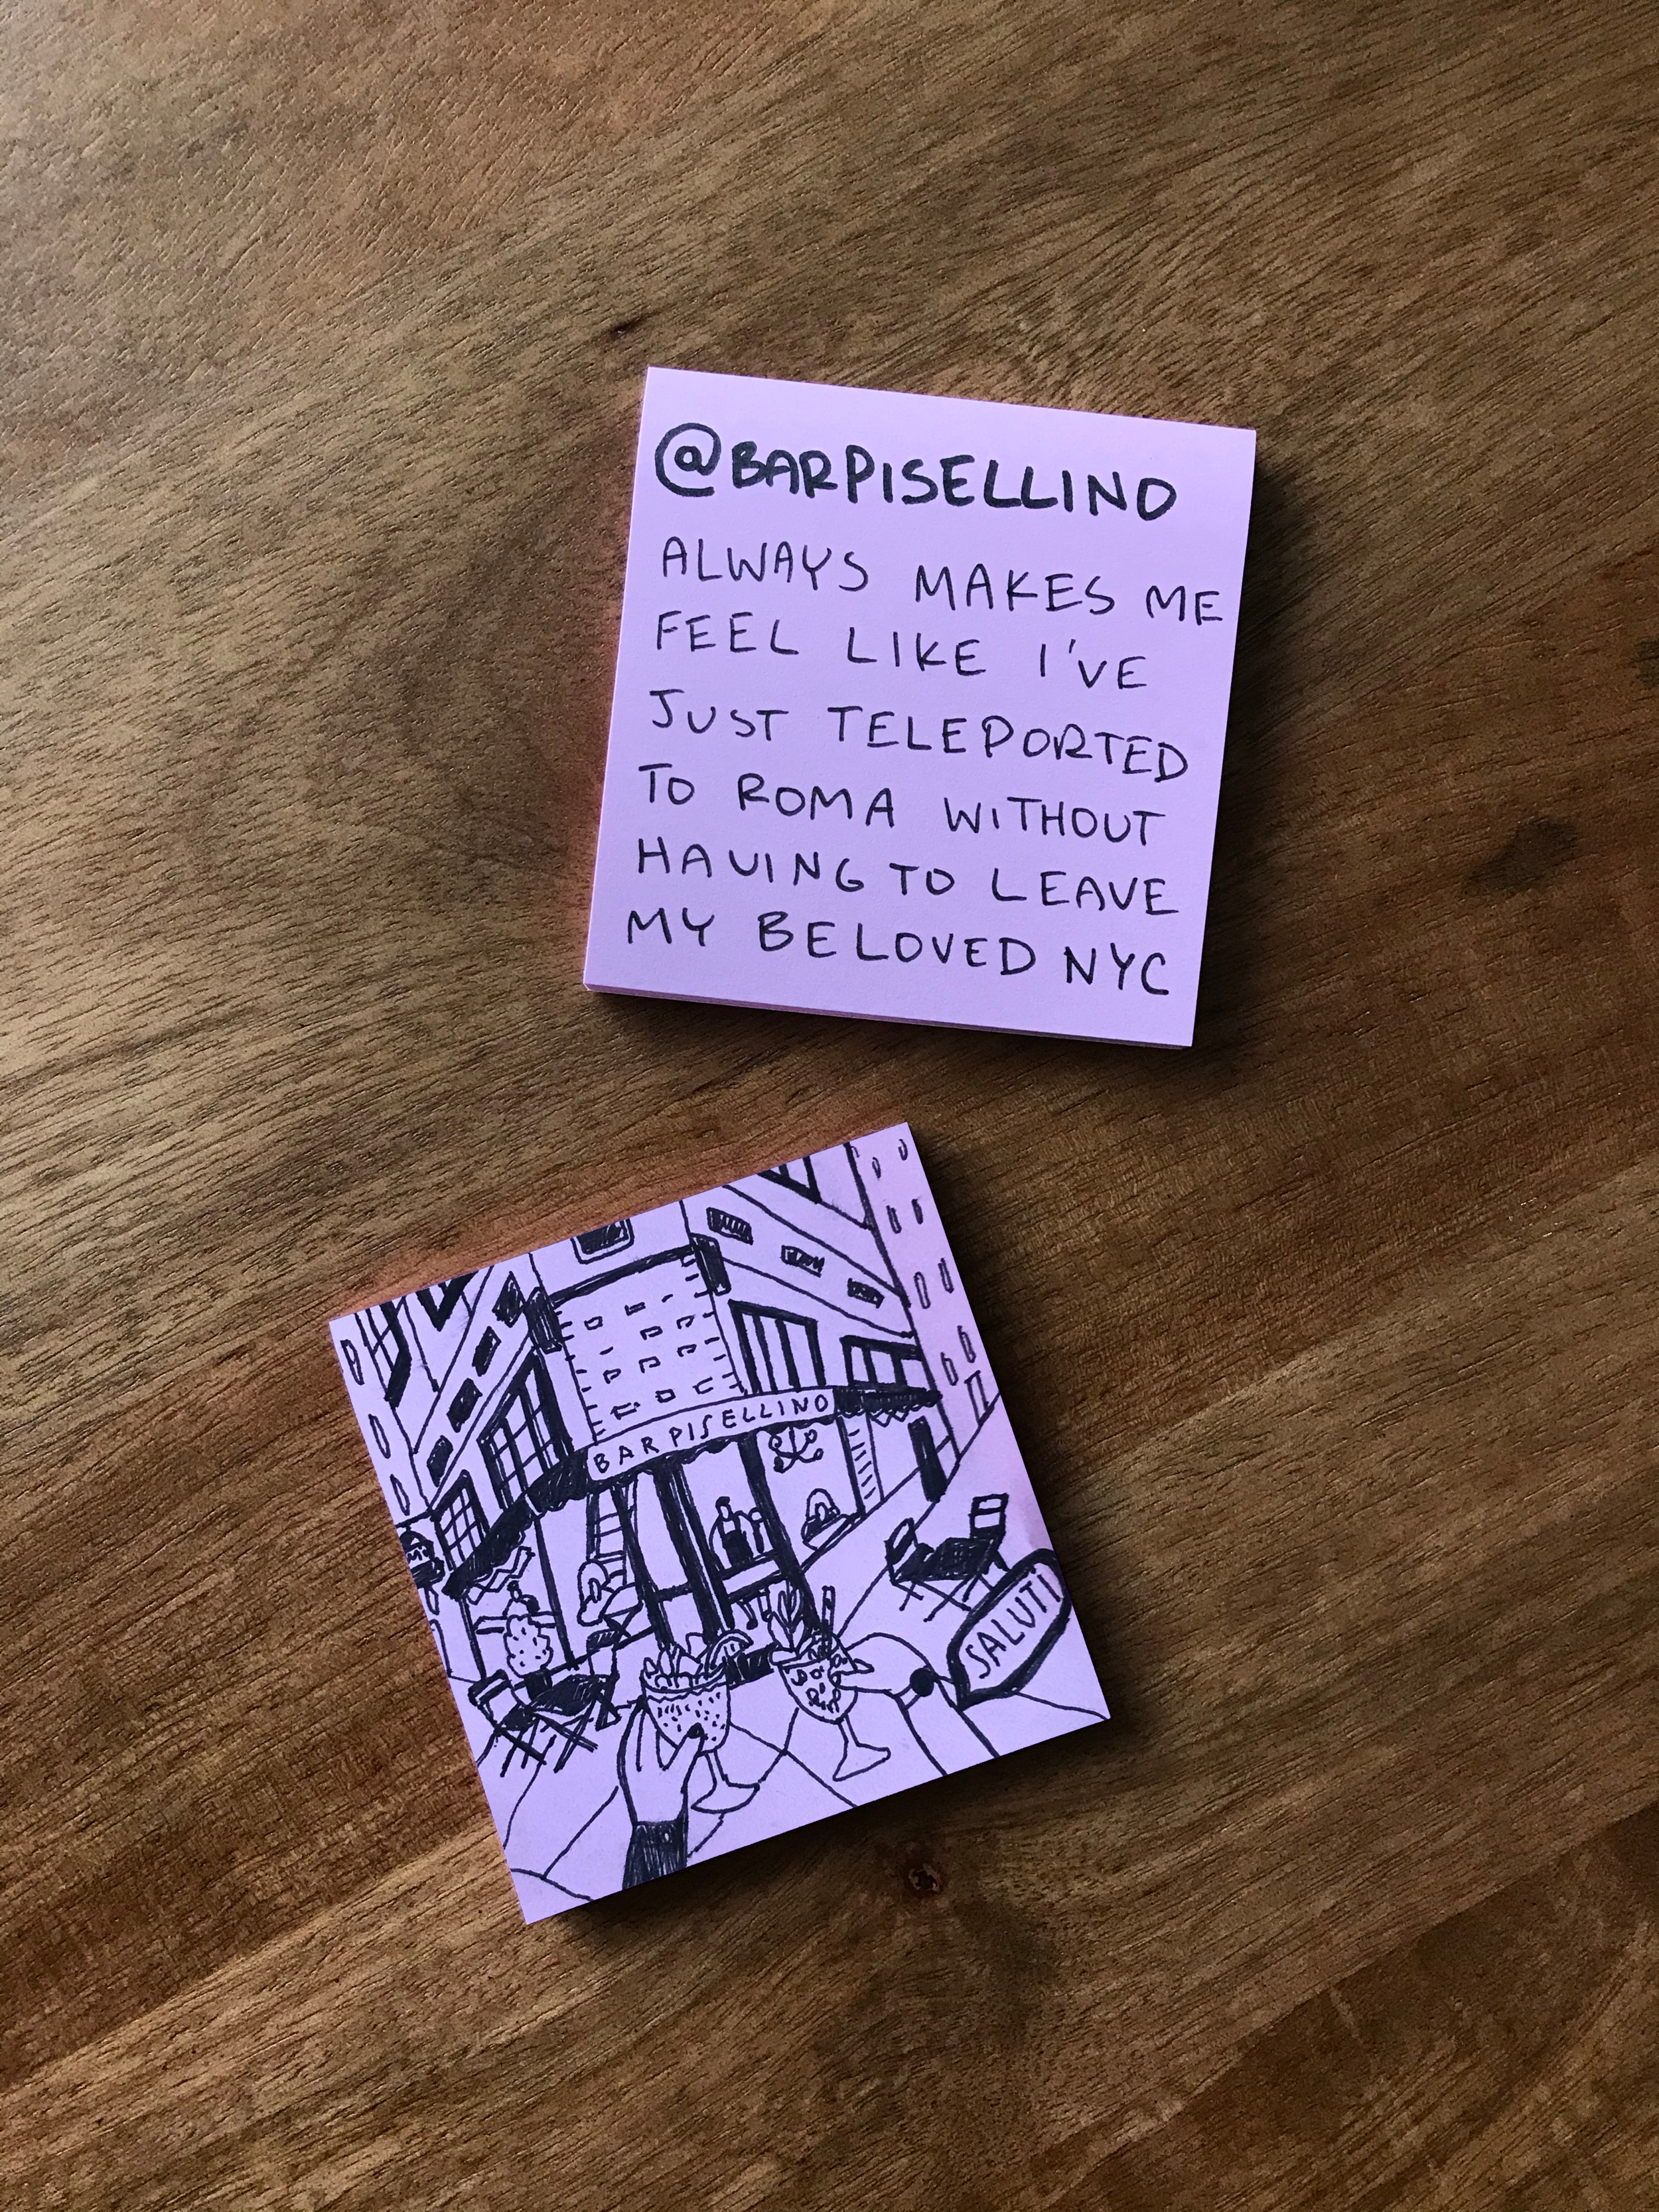 @BARPISELLINO
ALWAYS MAKES ME
FEEL LIKE I'VE
JUST TELEPORTED
TO ROMA WITHOUT
HAVING TO LEAVE
MY BELOVED NYC
BAR PISELLINO
SALUTI